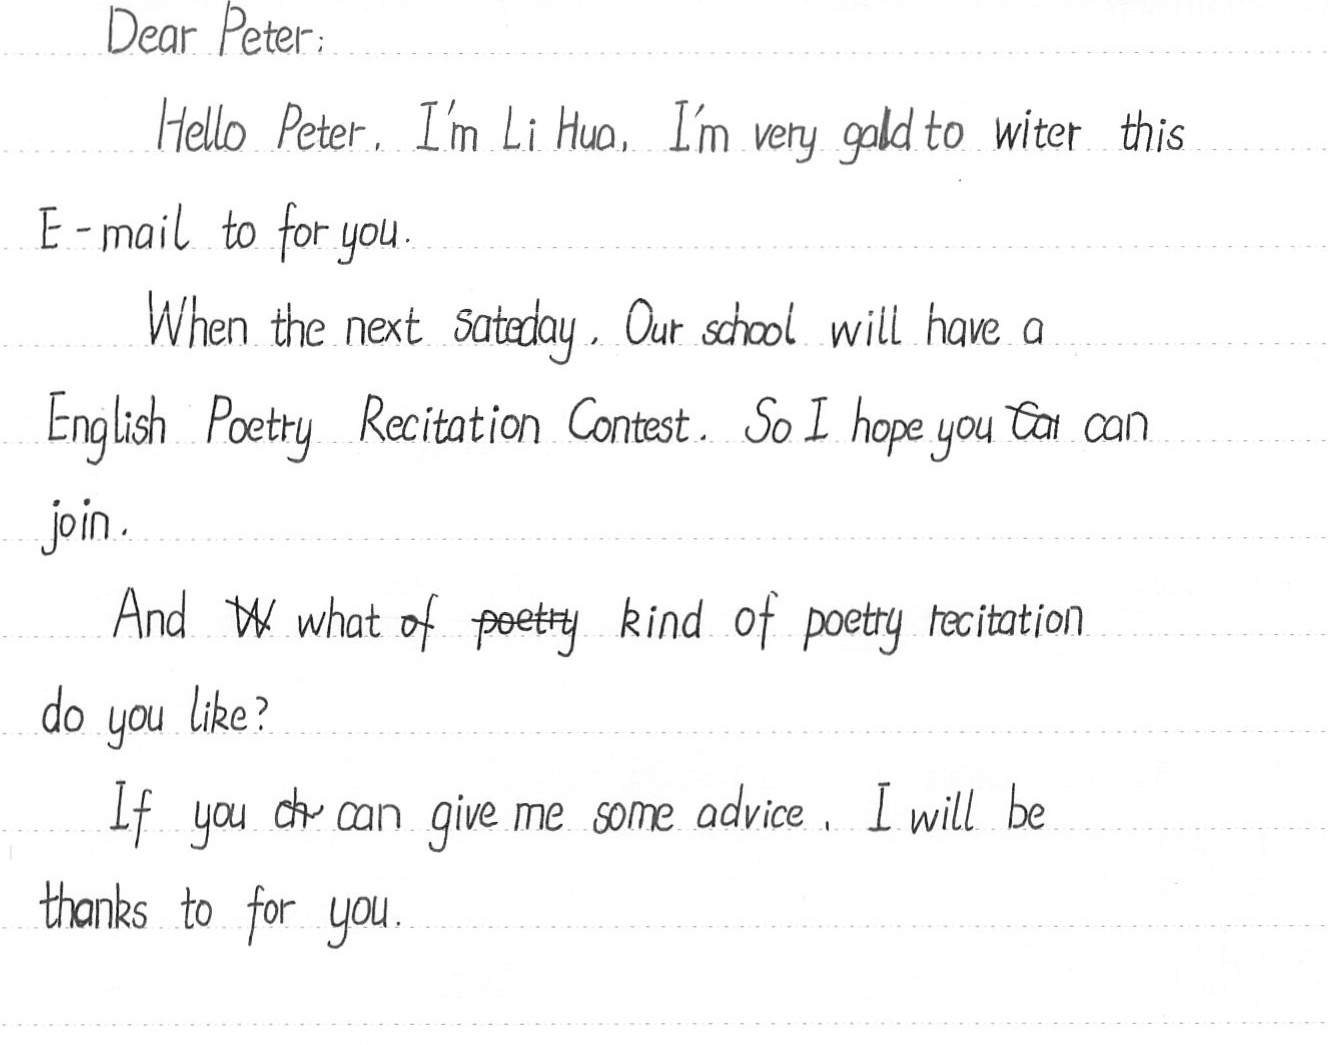 Dear Peter:
Hello Peter, I'm Li Hua, I'm very gald to witer this
E-mail to for you.
When the next sateday, Our school will have a
English Poetry Recitation Contest. So I hope you can
join.
And what of kind of poetry recitation
do you like?
If you can give me some advice, I will be
thanks to for you.